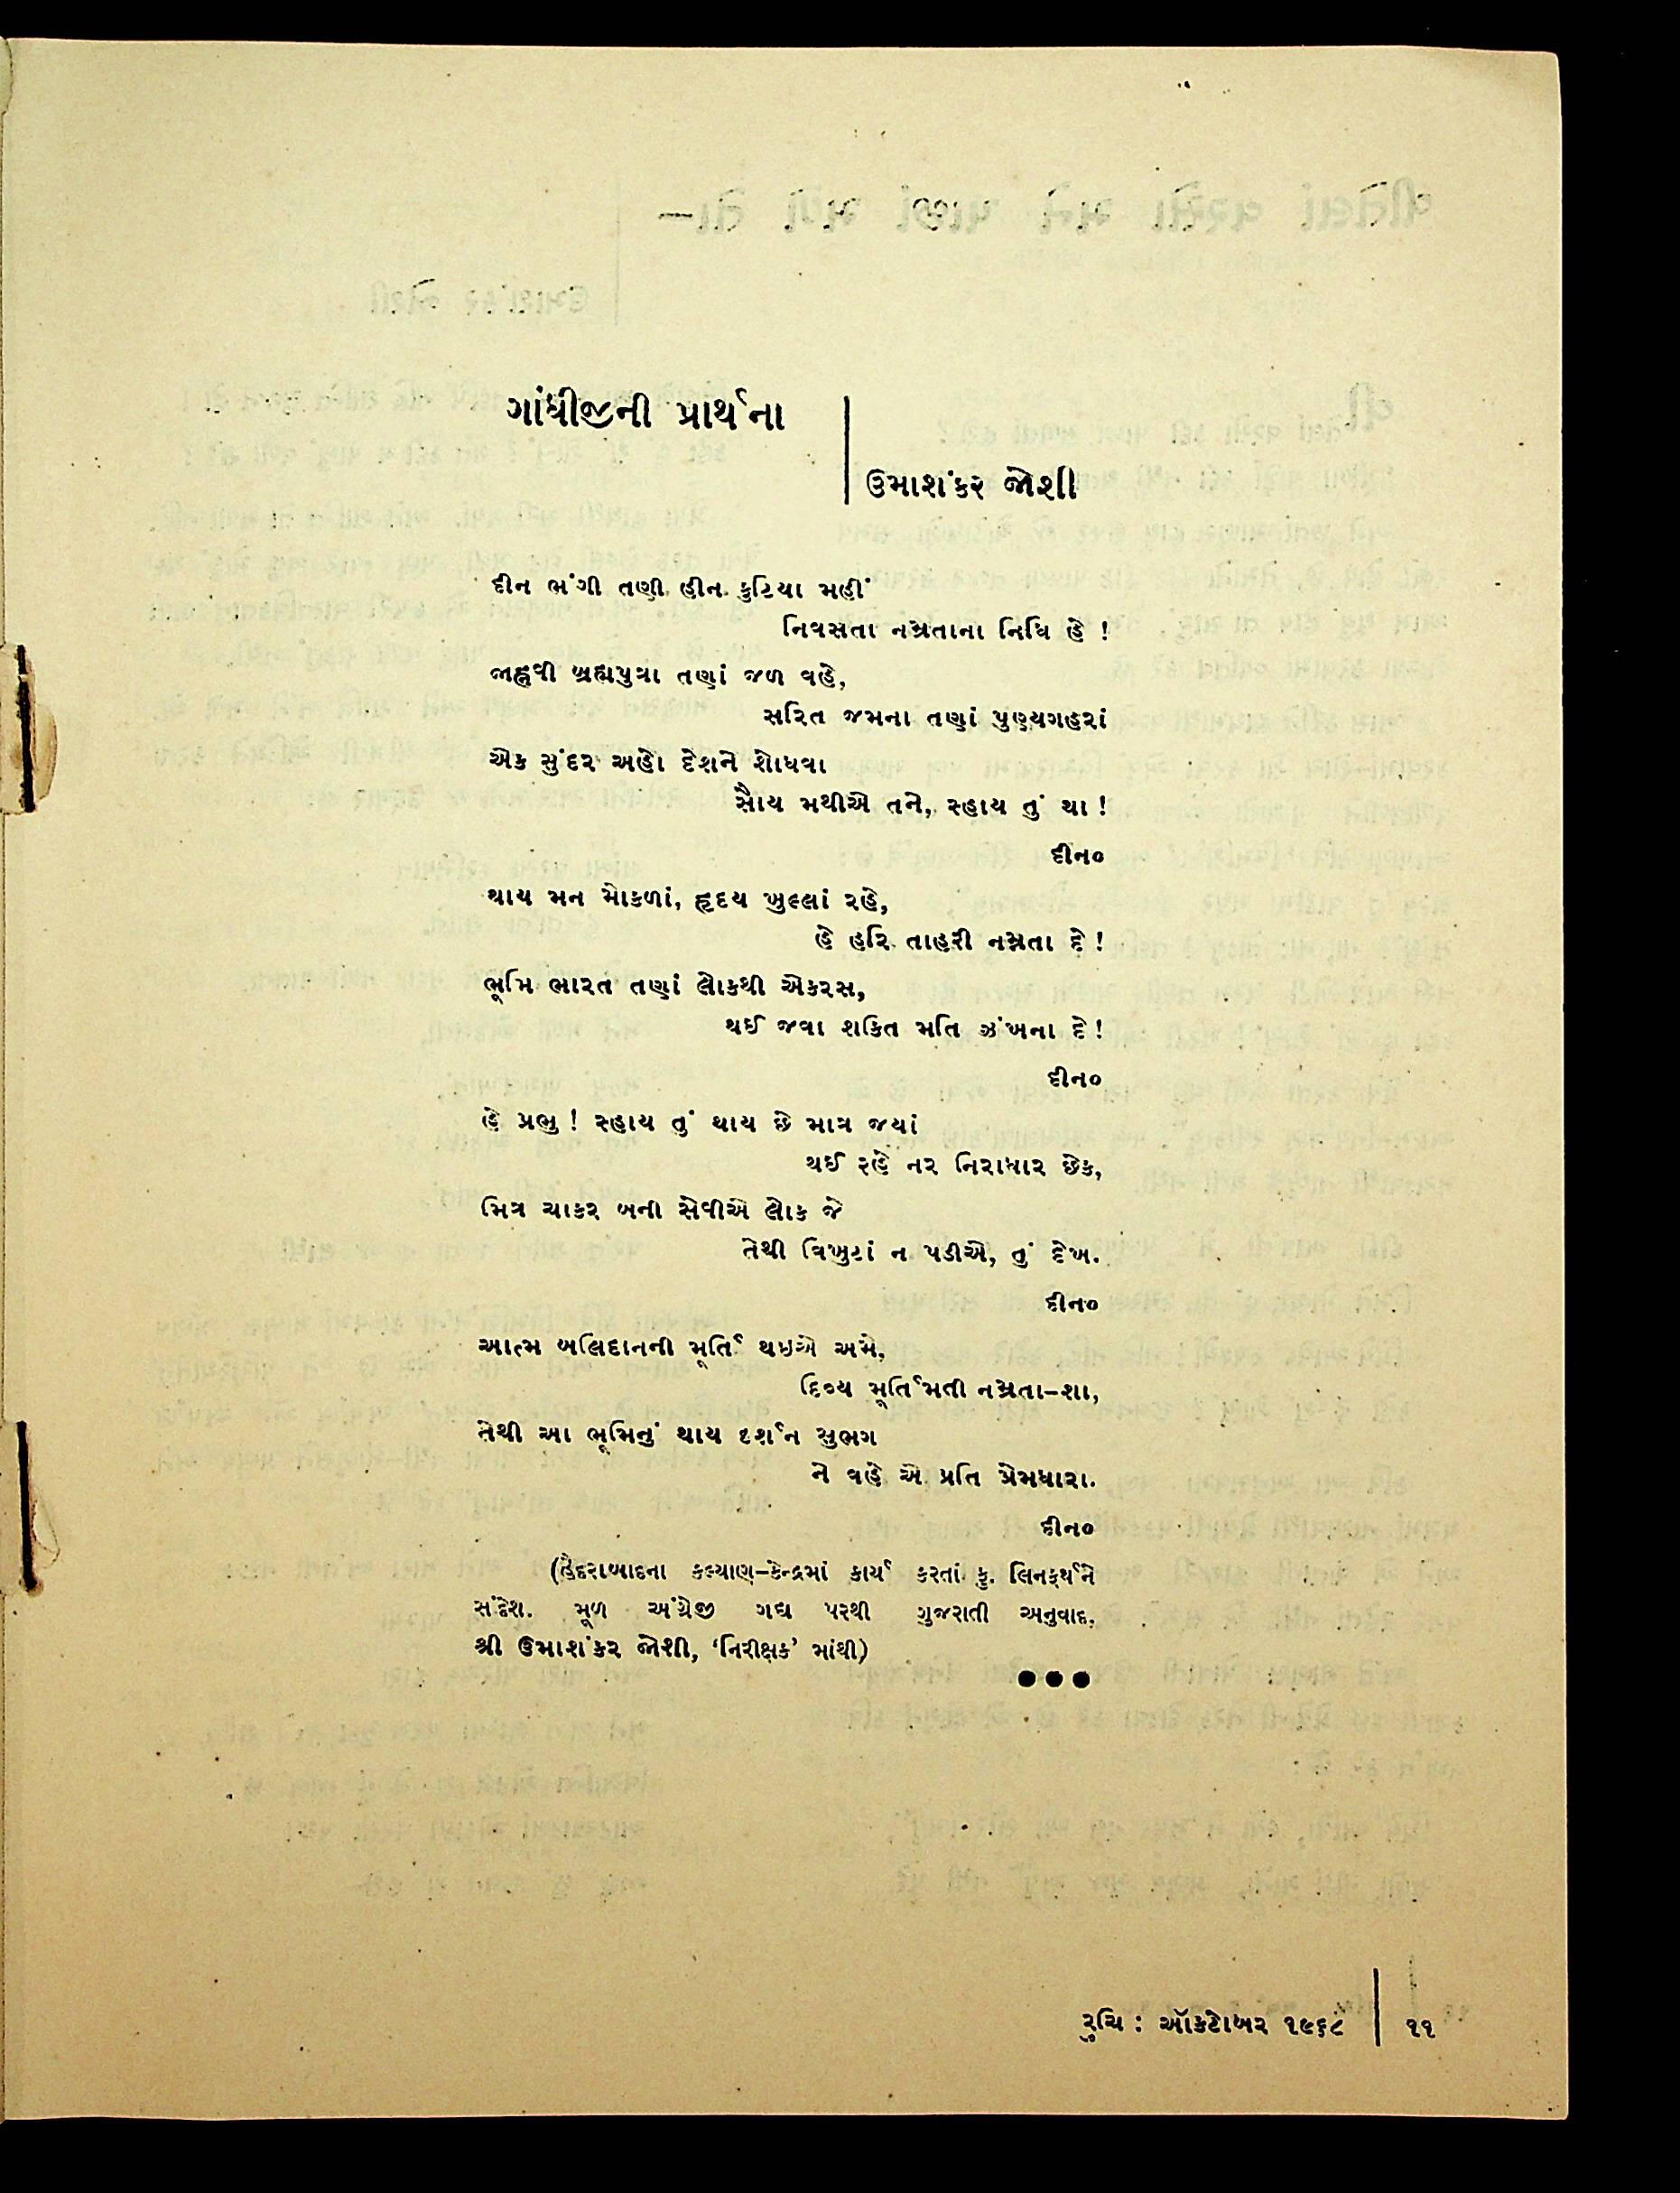 ગાંધીજીની પ્રાર્થના
ઉમાશંકર જોશી
દીન ભંગી તણી હીન કુટિયા મહીં
નિવસતા નમ્રતાના નિધિ હે !
જાહ્નવી બ્રહ્મપુત્રા તણાં જળ વહે,
સરિત જમના તણાં પુણ્યગહરાં
એક સુંદર અહો દેશને શોધવા
સૌય મથીએ તને, સ્હાય તું થા !
દીન૦
થાય મન મોકળાં, હૃદય ખુલ્લાં રહે,
હે હરિ તાહરી નમ્રતા દે !
ભૂમિ ભારત તણાં લોકથી એકરસ,
થઈ જવા શકિત મતિ ઝંખના દે !
દીન૦
હે પ્રભુ ! સ્હાય તું થાય છે માત્ર જયાં
થઈ રહે નર નિરાધાર છેક,
મિત્ર ચાકર બની સેવીએ લોક જે
તેથી વિખુટાં ન પડીએ, તું દેખ.
દીન૦
આત્મ બલિદાનની મૂર્તિ થઇએ અમે,
દિવ્ય મૂર્તિમતી નમ્રતા-શા,
તેથી આ ભૂમિનું થાય દર્શન સુભગ
ને વહે એ પ્રતિ પ્રેમધારા.
દીન૦
(હૈદરાબાદના કલ્યાણ-કેન્દ્રમાં કાર્ય કરતાં કુ. લિનફર્થને
સંદેશ. મૂળ અંગ્રેજી ગદ્ય પરથી ગુજરાતી અનુવાદ.
શ્રી ઉમાશંકર જોશી, ‘નિરીક્ષક’ માંથી)
રુચિ : ઑકટોબર ૧૯૬૮ ૧૧